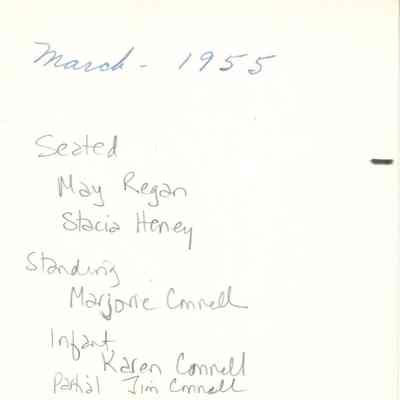 March - 1955
Seated
May Regan
Stacia Heney
Standing
Marjorie Connell
Infant
Karen Connell
Partial Jim Connell